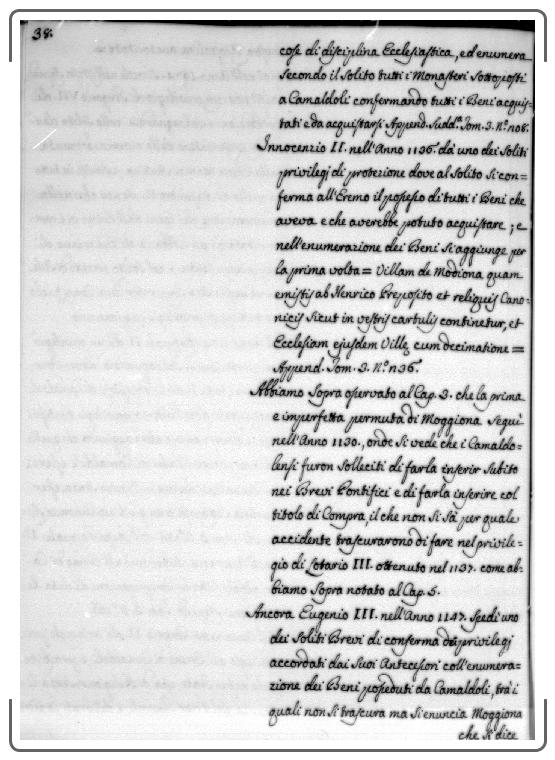 38.
cose di disciplina Ecclesiastica, ed enumera
secondo il Solito tutti i Monasteri Sottoposti
a Camaldoli confermando tutti i Beni acquis=
tati e da acquistarsi Append. Sudd.ª Tom. 3. N.º
Innocenzio II. nell'Anno 1136. dà uno dei Soliti
privilegj di protezione dove al Solito Si con=
ferma all'Eremo il possesso di tutti i Beni che
aveva e che averebbe potuto acquistare; e
nell'enumerazione dei Beni Si aggiunge per
la prima volta = Villam de Modiona quam
emistis ab Henrico Preposito et reliquis Cano=
nicis Sicut in vestris cartulis continetur, et
Ecclesiam ejusdem Ville cum decimatione =
Append. Tom. 3. N.º
Abbiamo Sopra osservato al Cap. 3. che la prima
e imperfetta permuta di Moggiona Seguì
nell'Anno 1130., onde Si vede che i Camaldo=
lensi furon Solleciti di farla inserir Subito
nei Brevi Pontifici e di farla inserire col
titolo di Compra, il che non Si Sà per quale
accidente trascurarono di fare nel privile=
gio di Lotario III. ottenuto nel 1137. come ab=
biamo Sopra notato al Cap. 5.
Ancora Eugenio III. nell'Anno 1147. Spedì uno
dei Soliti Brevi di conferma dei privilegj
accordati dai Suoi Antecessori coll'enumera=
zione dei Beni posseduti da Camaldoli, trà i
quali non Si trascura ma Si enuncia Moggiona
che Si dice